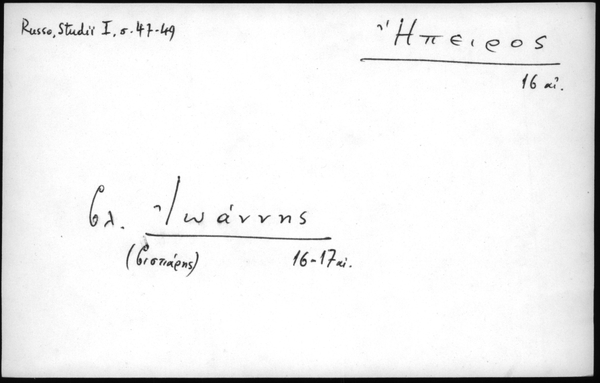 Russo, Studii I, σ. 47-49
Ἤπειρος
16 αἰ.
βλ. Ἰωάννης
(βιστιάρης) 16-17 αἰ.